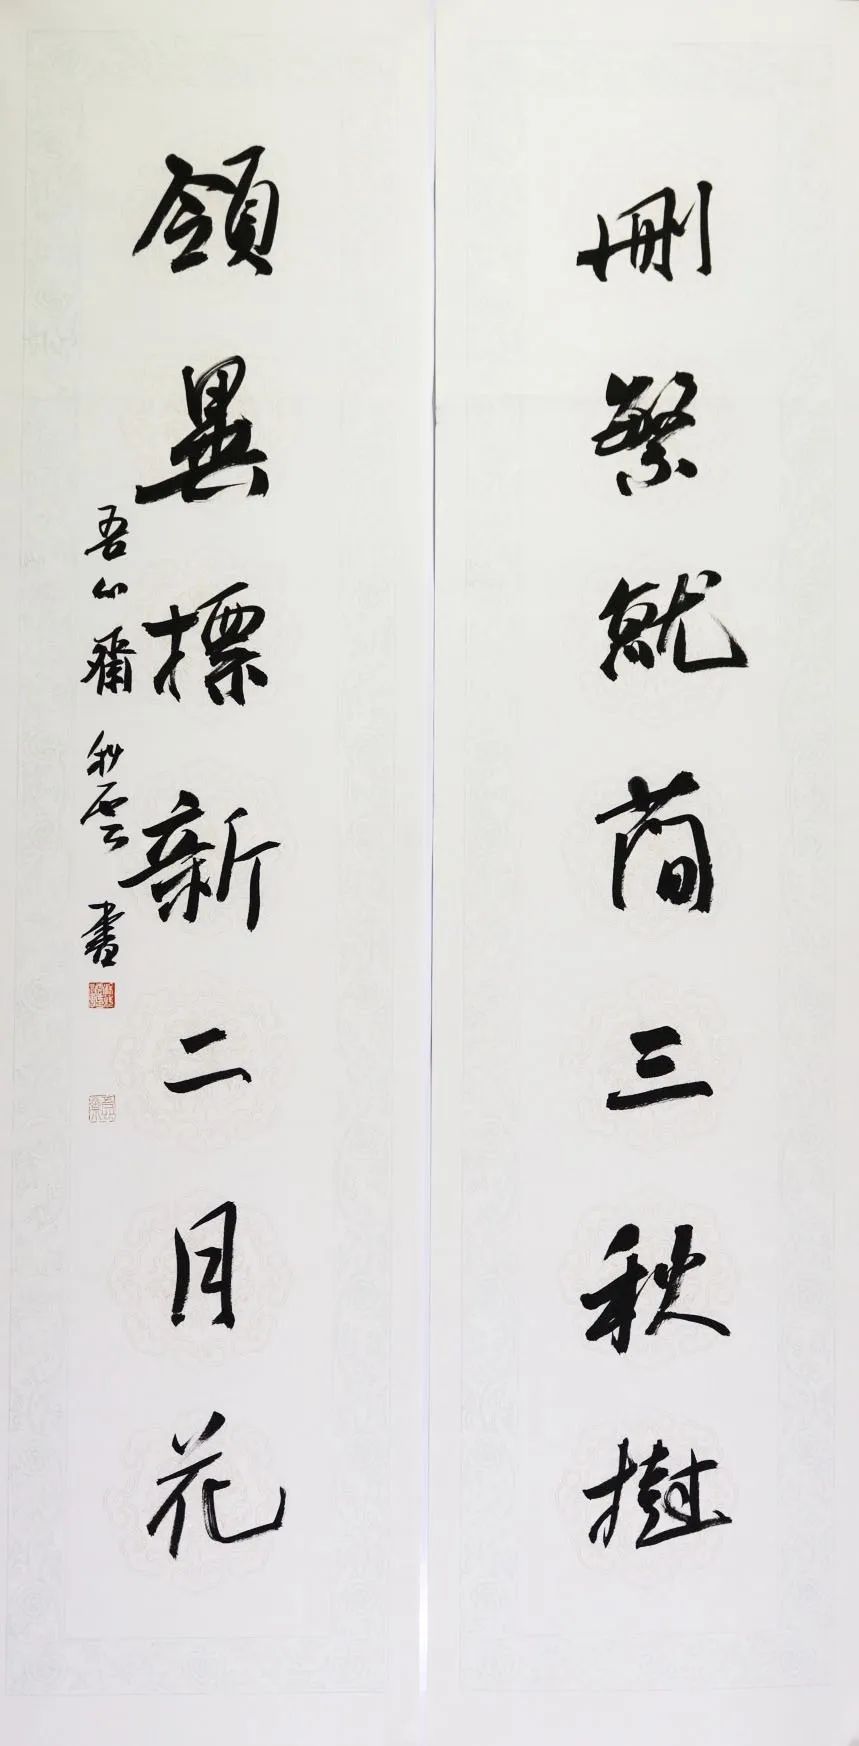 刪繁就简三秋樹
領異標新二月花
吾心齋秋雲書